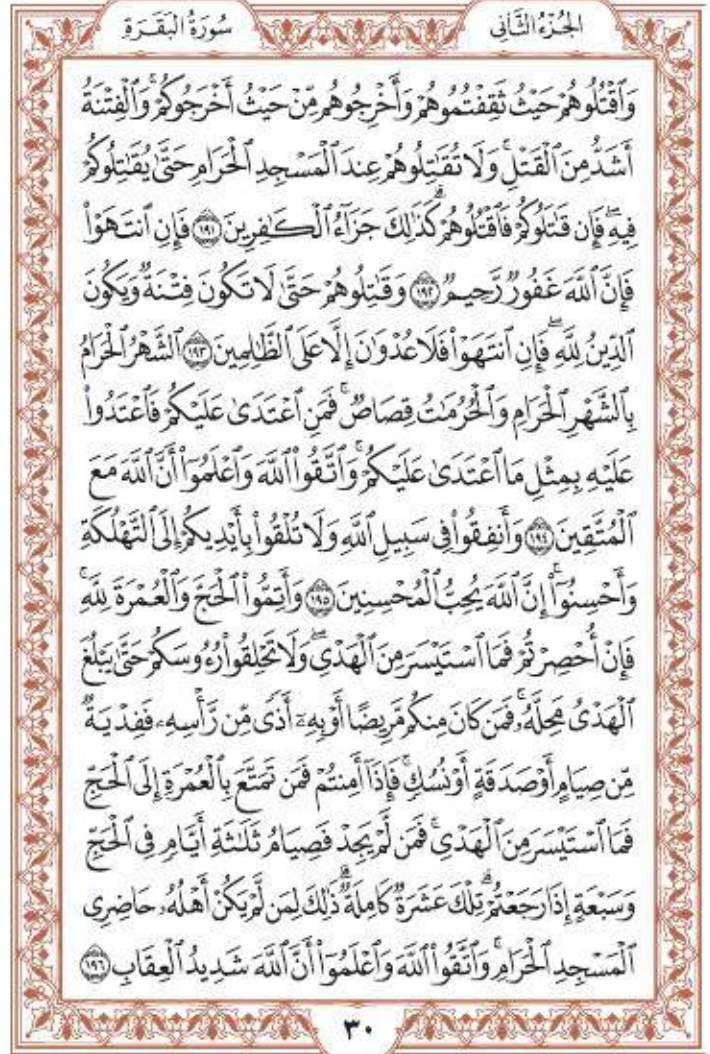 الجُزْءُ الثَّانِي
سُورَةُ البَقَرَةِ
وَٱقۡتُلُوهُمۡ حَيۡثُ ثَقِفۡتُمُوهُمۡ وَأَخۡرِجُوهُم مِّنۡ حَيۡثُ أَخۡرَجُوكُمۡۚ وَٱلۡفِتۡنَةُ
أَشَدُّ مِنَ ٱلۡقَتۡلِۚ وَلَا تُقَٰتِلُوهُمۡ عِندَ ٱلۡمَسۡجِدِ ٱلۡحَرَامِ حَتَّىٰ يُقَٰتِلُوكُمۡ
فِيهِۖ فَإِن قَٰتَلُوكُمۡ فَٱقۡتُلُوهُمۡۗ كَذَٰلِكَ جَزَآءُ ٱلۡكَٰفِرِينَ ١٩١ فَإِنِ ٱنتَهَوۡاْ
فَإِنَّ ٱللَّهَ غَفُورٞ رَّحِيمٞ ١٩٢ وَقَٰتِلُوهُمۡ حَتَّىٰ لَا تَكُونَ فِتۡنَةٞ وَيَكُونَ
ٱلدِّينُ لِلَّهِۖ فَإِنِ ٱنتَهَوۡاْ فَلَا عُدۡوَٰنَ إِلَّا عَلَى ٱلظَّٰلِمِينَ ١٩٣ ٱلشَّهۡرُ ٱلۡحَرَامُ
بِٱلشَّهۡرِ ٱلۡحَرَامِ وَٱلۡحُرُمَٰتُ قِصَاصٞۚ فَمَنِ ٱعۡتَدَىٰ عَلَيۡكُمۡ فَٱعۡتَدُواْ
عَلَيۡهِ بِمِثۡلِ مَا ٱعۡتَدَىٰ عَلَيۡكُمۡۚ وَٱتَّقُواْ ٱللَّهَ وَٱعۡلَمُوٓاْ أَنَّ ٱللَّهَ مَعَ
ٱلۡمُتَّقِينَ ١٩٤ وَأَنفِقُواْ فِي سَبِيلِ ٱللَّهِ وَلَا تُلۡقُواْ بِأَيۡدِيكُمۡ إِلَى ٱلتَّهۡلُكَةِ
وَأَحۡسِنُوٓاْۚ إِنَّ ٱللَّهَ يُحِبُّ ٱلۡمُحۡسِنِينَ ١٩٥ وَأَتِمُّواْ ٱلۡحَجَّ وَٱلۡعُمۡرَةَ لِلَّهِۚ
فَإِنۡ أُحۡصِرۡتُمۡ فَمَا ٱسۡتَيۡسَرَ مِنَ ٱلۡهَدۡيِۖ وَلَا تَحۡلِقُواْ رُءُوسَكُمۡ حَتَّىٰ يَبۡلُغَ
ٱلۡهَدۡيُ مَحِلَّهُۥۚ فَمَن كَانَ مِنكُم مَّرِيضًا أَوۡ بِهِۦٓ أَذٗى مِّن رَّأۡسِهِۦ فَفِدۡيَةٞ
مِّن صِيَامٍ أَوۡ صَدَقَةٍ أَوۡ نُسُكٖۚ فَإِذَآ أَمِنتُمۡ فَمَن تَمَتَّعَ بِٱلۡعُمۡرَةِ إِلَى ٱلۡحَجِّ
فَمَا ٱسۡتَيۡسَرَ مِنَ ٱلۡهَدۡيِۚ فَمَن لَّمۡ يَجِدۡ فَصِيَامُ ثَلَٰثَةِ أَيَّامٖ فِي ٱلۡحَجِّ
وَسَبۡعَةٍ إِذَا رَجَعۡتُمۡۗ تِلۡكَ عَشَرَةٞ كَامِلَةٞۗ ذَٰلِكَ لِمَن لَّمۡ يَكُنۡ أَهۡلُهُۥ حَاضِرِي
ٱلۡمَسۡجِدِ ٱلۡحَرَامِۚ وَٱتَّقُواْ ٱللَّهَ وَٱعۡلَمُوٓاْ أَنَّ ٱللَّهَ شَدِيدُ ٱلۡعِقَابِ ١٩٦
٣٠